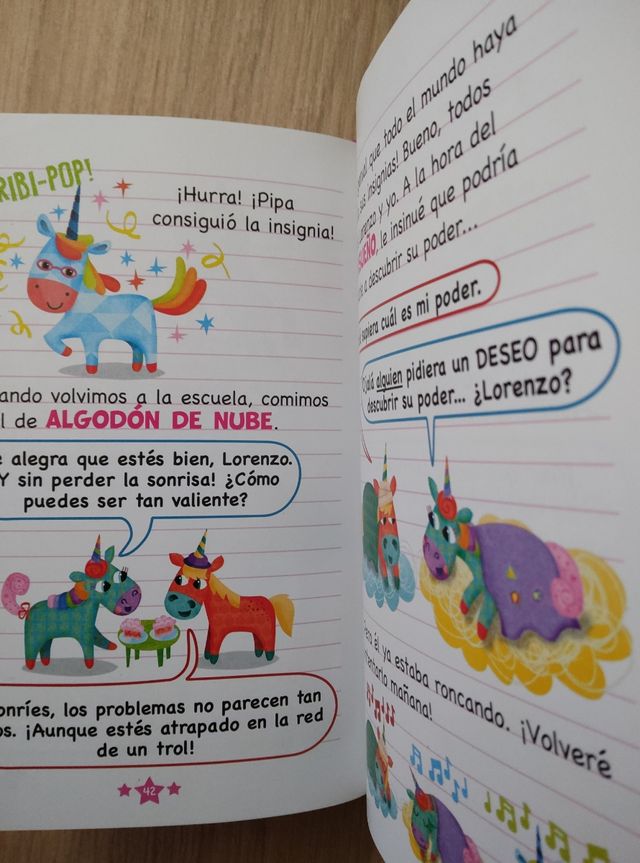 RIBI-POP!
¡Hurra! ¡Pipa
consiguió la insignia!
ando volvimos a la escuela, comimos
l de ALGODÓN DE NUBE.
e alegra que estés bien, Lorenzo.
Y sin perder la sonrisa! ¿Cómo
puedes ser tan valiente?
onríes, los problemas no parecen tan
os. ¡Aunque estés atrapado en la red
de un trol!
42
que todo el mundo haya
insignias! Bueno, todos
y yo. A la hora del
le insinué que podría
a descubrir su poder...
supiera cuál es mi poder.
alguien pidiera un DESEO para
descubrir su poder... ¿Lorenzo?
él ya estaba roncando. ¡Volveré
mañana!